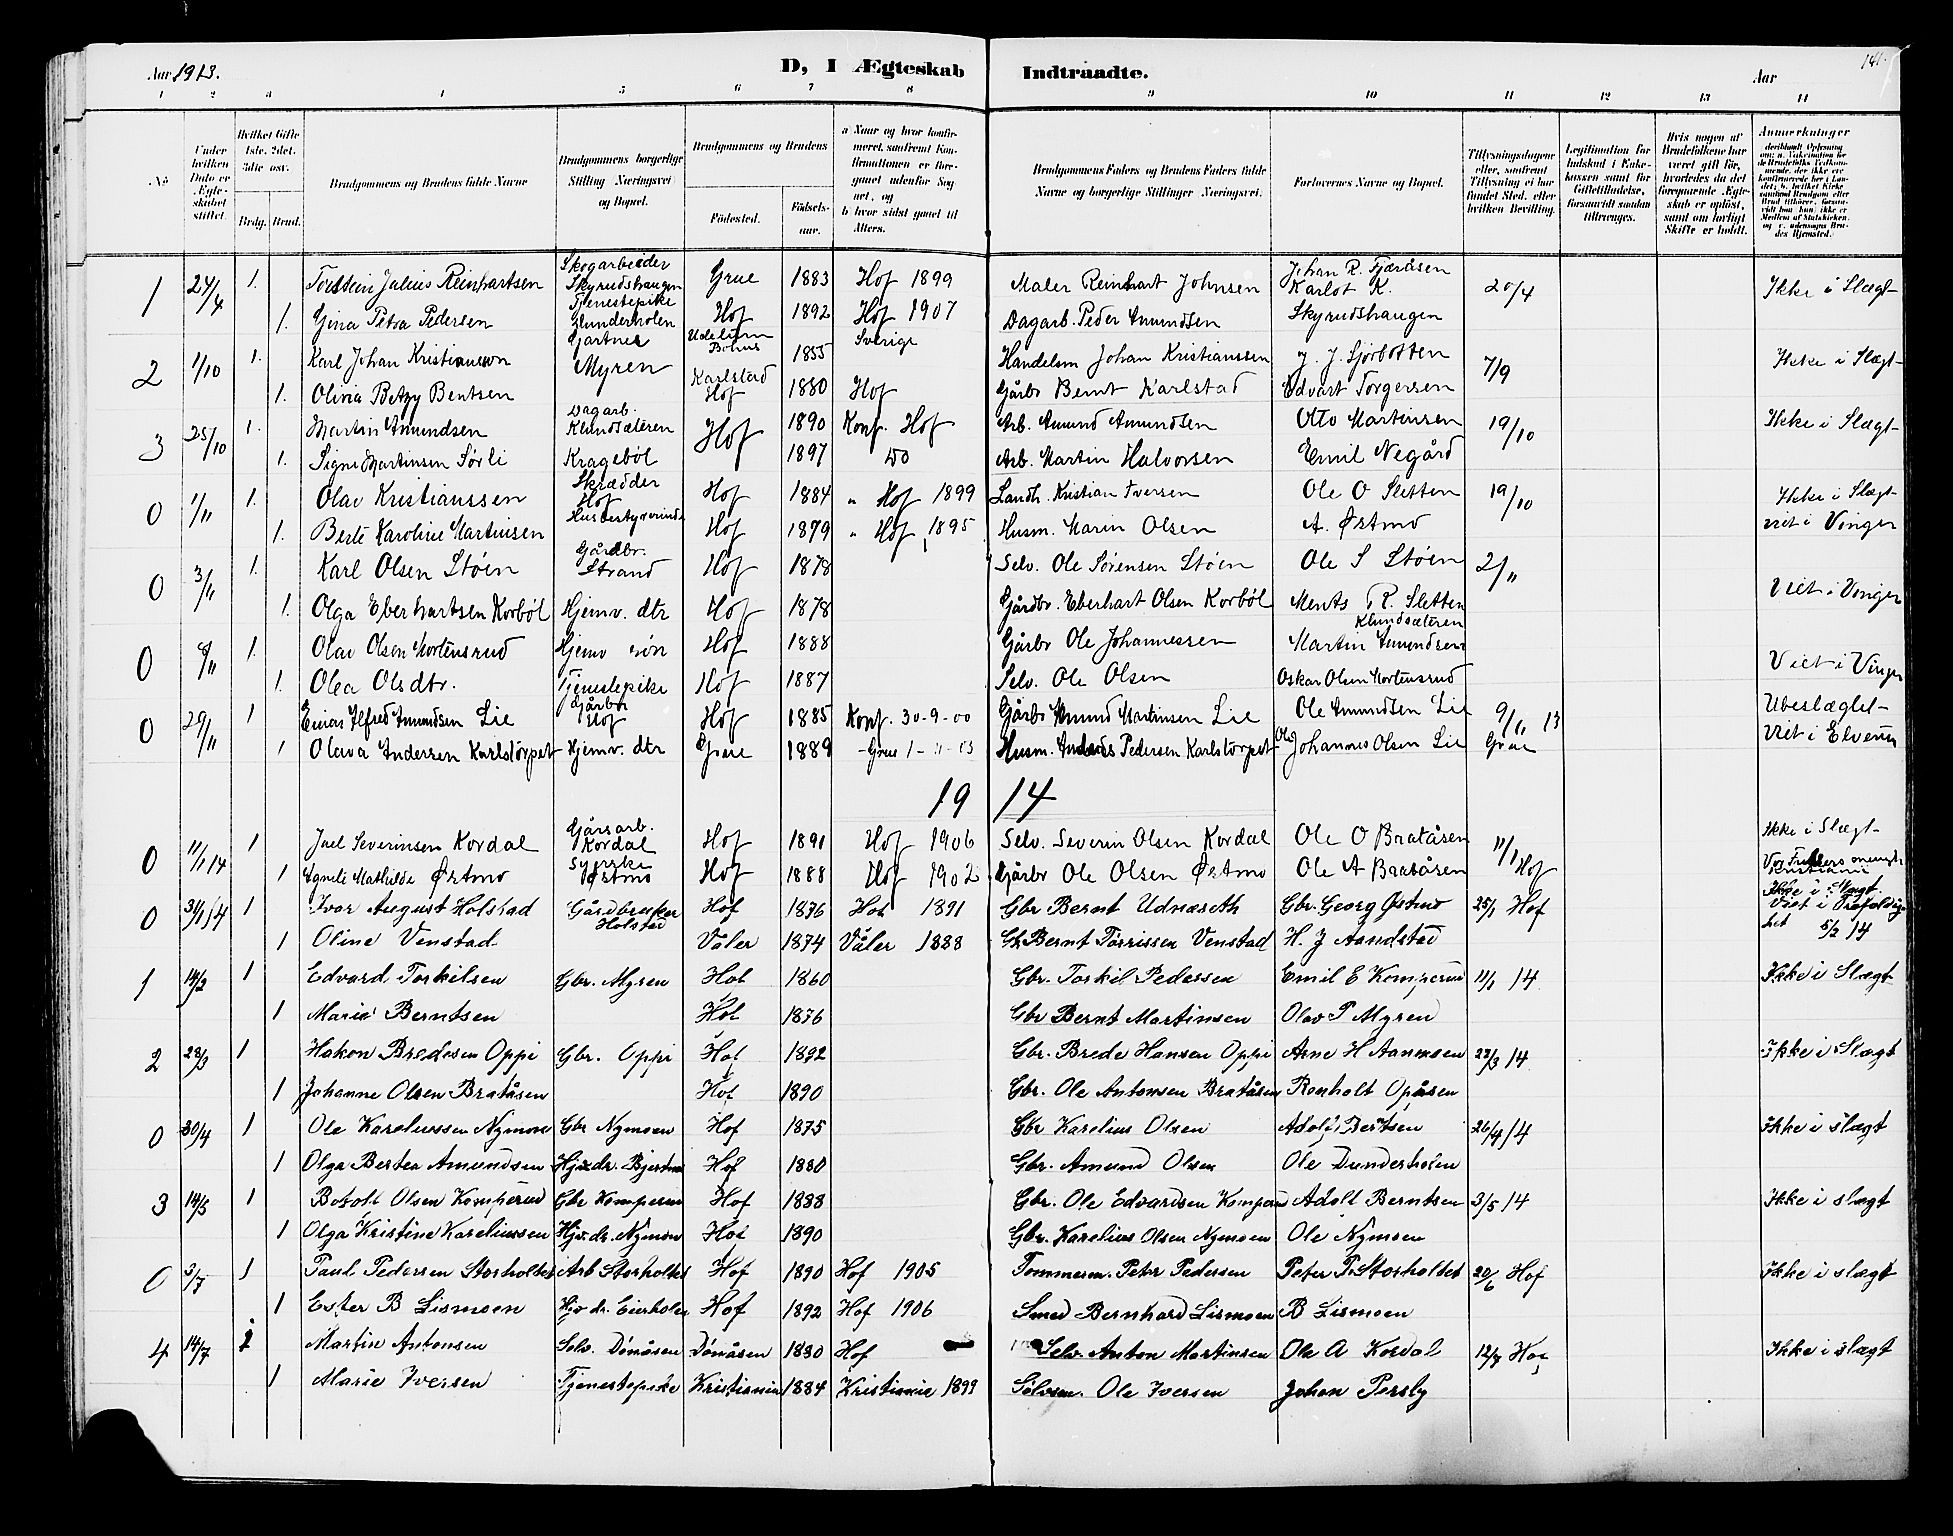 Aar 1913. D, I Ægteskab Indtraadte. Aar 141.
1 2 3 4 5 6 7 8 9 10 11 12 13 14
No
Under hvilken Dato er Ægteskabet stiftet.
Hvilket Gifte 1ste, 2det, 3die osv.
Brdg. Brud.
Brudgommens og Brudens fulde Navne
Brudgommens borgerlige Stilling Næringsvei og Bopæl.
Brudgommens og Brudens
Fødested. Fødselsaar.
a Naar og hvor konfirmeret, saafremt Konfirmationen er foregaaet udenfor Sognet, og
b hvor sidst gaaet til Alters.
Brudgommens Faders og Brudens Faders fulde Navne og borgerlige Stillinger Næringsvei.
Forlovernes Navne og Bopæl.
Tillysningsdagene eller, saafremt Tillysning ei har fundet Sted, efter hvilken Bevilling.
Legitimation for Indskud i Enkekassen samt for Giftetilladelse, forsaavidt saadan tiltrænges.
Hvis nogen af Brudefolkene har været gift før, hvorledes da det foregaaende Ægteskab er opløst, samt om lovligt Skifte er holdt.
Anmerkninger
1 24/4 1. Torstein Julius Reinhartsen Skogarbeider Skyrudshaugen Grue 1883 Hof 1899 Maler Reinhart Johnsen Johan R. Fjæråsen 20/4 Ikke i Slægt
1. Gina Petra Pedersen Tjenestepike Hof 1892 Hof 1907 Dagarb. Peder Amundsen Karlot K. Skyrudshaugen
2 1/10 1. Karl Johan Kristiansen Gartner Myren 1855 Sverige Handelsm Johan Kristianssen J. J. Sjørbotten 7/9 Ikke i Slægt
1. Olivia Betzy Bentsen Karlstad Hof 1880 Hof Gårbr Bernt Karlstad Edvart Torgersen
3 25/10 1. Martin Amundsen Dagarb. Klundsæteren Hof 1890 Konf. Hof Arb. Amund Amundsen Otto Martinsen 19/10 Ikke i Slægt
1. Signe Martinsen Sørli Kragebøl 1897 do Arb. Martin Halvorsen Emil Negård
0 1/11 1. Olav Kristianssen Skrædder Hof Hof 1884 " Hof 1899 Landh. Kristian Iversen Ole O Sletten 19/10 Ikke i Slægt
1. Berte Karoline Martinsen Husbestyrerinde Hof 1879 " Hof 1895 Husm. Marin Olsen A. Østmo viet i Vinger
0 3/11 1. Karl Olsen Støen Gårdbr. Strand Hof 1878 Selv. Ole Sørensen Støen Ole S Støen 2/11
1. Olga Eberhartsen Korbøl Hjemv. dtr Hof 1878 Gårdbr. Eberhart Olsen Korbøl Ments R. Sletten Viet i Vinger
Klundsæteren
0 1. Olav Olsen Mortensrud Hjemv søn Hof 1888 Gårbr Ole Johannessen Martin Amundsen
1. Olea Olsdtr. Tjenestepike Hof 1887 Selv. Ole Olsen Oskar Olsen Mortensrud Viet i Vinger
0 29/11 1 Einar Alfred Amundsen Lie Gårbr Hof Hof 1885 Konf. 30-9-00 Gårbr Amund Martinsen Lie Ole Amundsen Lie 9/11 13 Ubeslægtet
1 Olava Andersen Karlstorpet Hjemv. dtr Grue 1889 Grue Husm. Anders Pedersen Karlstorpet Johannes Olsen Lie Grue Viet i Elverum
1914
0 11/1 14 1 Juel Severinsen Kordal Gårsarb. Kordal Hof 1891 Hof 1906 Selv. Severin Olsen Kordal Ole O Bratåsen 11/1 Ikke i Slægt
1 Agnete Mathilde Østmo Syerske Østmo Hof 1888 Hof 1902 Gårbr Ole Olsen Østmo Ole A Bratåsen Hof Vor Frelsers Kristiania
0 31/1 14 1 Ivar August Holstad Gårdbruker Holstad Hof 1876 Hof 1891 Gbr Bernt Udnæseth Gbr. Georg Østmo 25/1 Hof Ikke i Slægt. Viet i Trefoldighet 5/2 14
1 Oline Venstad Våler 1874 Våler 1888 Gb Bernt Tørrissen Venstad H. J Aandstad
1 14/2 1 Edvard Torkilsen Gbr. Myren Hof 1860 Gbr. Torkil Pedersen Emil E Komperud 11/1 14 Ikke i Slægt
1 Marie Berntsen Hof 1876 Gbr Bernt Martinsen Olav P Myren
2 28/3 1 Håkon Bredesen Oppi Gbr. Oppi Hof 1892 Gbr. Brede Hansen Oppi Arne H Aamosen 22/3 14 Ikke i Slægt
1 Johanne Olsen Bratåsen Hof 1890 Gbr. Ole Antonsen Bratåsen Ronholt Opåsen
0 30/4 1 Ole Kareliussen Nymoen Gbr Nymoen Hof 1875 Gbr Karelius Olsen Adolf Bertsen 26/4 14 Ikke i slægt
1 Olga Bertea Amundsen Hjv.dr. Hof 1880 Gbr. Amund Olsen Ole Dunderholen
3 14/5 1 Botolf Olsen Komperud Gbr Komperud Hof 1888 Gbr. Ole Edvardsen Komperud Adolf Berntsen 3/5 14 Ikke i slægt
1 Olga Kristine Kareliussen Hjv.dr. Nymoen Hof 1890 Gbr. Karelius Olsen Nymoen Ole Nymoen
0 3/7 1 Paul Pedersen Storholtet Arb Storholtet Hof 1890 Hof 1905 Tømmerm. Peter Pedersen Peter P. Storholtet 20/6 Hof Ikke i slægt
1 Ester B Lismoen Hjv dr. Hof 1892 Hof 1906 Smed Bernhard Lismoen B Lismoen
4 14/7 Martin Antonsen Selv. Dønåsen Dønåsen 1880 Hof Selv. Anton Martinsen Ole A Kordal 12/7 Hof Ikke i slægt
1 Marie Iversen Tjenestepike Kristiania 1884 Kristiania 1899 Ole Iversen Johan Persby